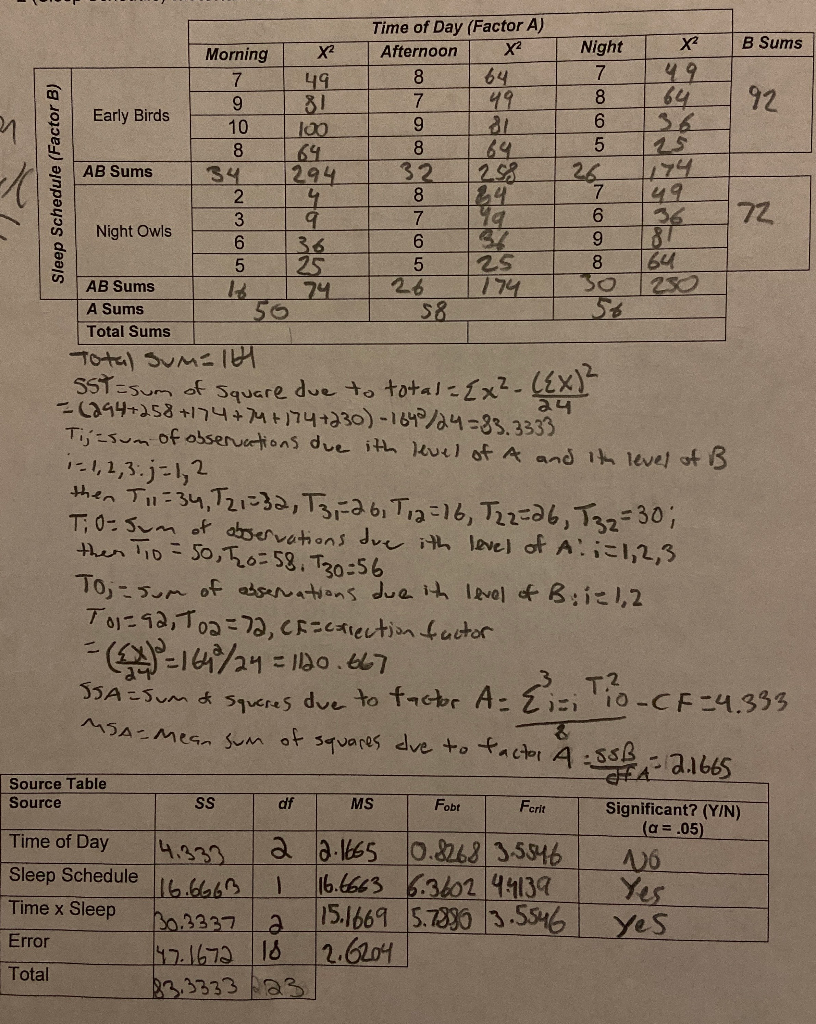 Time of Day (Factor A)
Morning X² Afternoon X² Night X² B Sums
Sleep Schedule (Factor B)
Early Birds
7 49 8 64 7 49
9 81 7 49 8 64 92
10 100 9 81 6 36
8 64 8 64 5 25
AB Sums 34 294 32 258 26 174
Night Owls
2 4 8 64 7 49
3 9 7 49 6 36 72
6 36 6 36 9 81
5 25 5 25 8 64
AB Sums 16 74 26 174 30 230
A Sums 50 58 56
Total Sums
Total sum = 164
SST = sum of square due to total = Σx² - (Σx)²/24
= (294+258+174+74+174+230) - 164²/24 = 83.3333
Tij = sum of observations due ith level of A and ith level of B
i=1,2,3: j=1,2
then T11=34, T21=32, T31=26, T12=16, T22=26, T32=30;
Ti0= sum of observations due ith level of A: i=1,2,3
then T10 = 50, T20=58, T30=56
T0j = sum of observations due ith level of B: i=1,2
T01=92, T02=72, CF=correction factor
= (Σx)²/24 = 164²/24 = 1120.667
SSA = sum of squares due to factor A = Σ³i=i T²i0/8 - CF = 4.333
MSA = mean sum of squares due to factor A = SSB/dfA = 2.1665
Source Table
Source SS df MS Fobt Fcrit Significant? (Y/N)
(α = .05)
Time of Day 4.333 2 2.1665 0.8268 3.5546 NO
Sleep Schedule 16.6663 1 16.6663 6.3602 4.4139 Yes
Time x Sleep 30.3337 2 15.1669 5.7880 3.5546 yes
Error 47.1672 18 2.6204
Total 83.3333 23